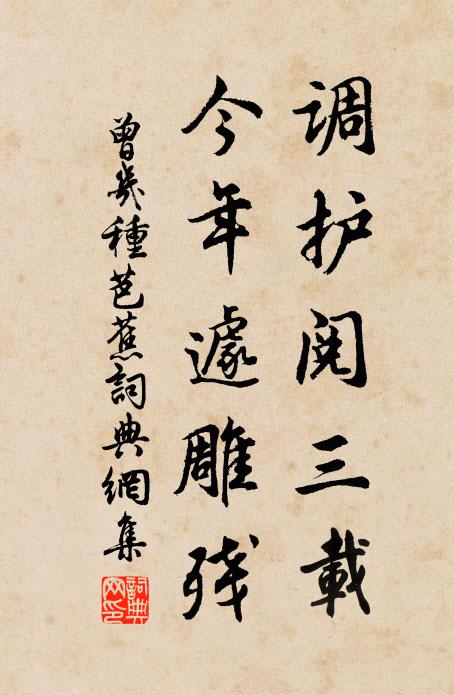 调护阅三載
今年遽雕残
曾幾種芭蕉詞典網集
詞典網印